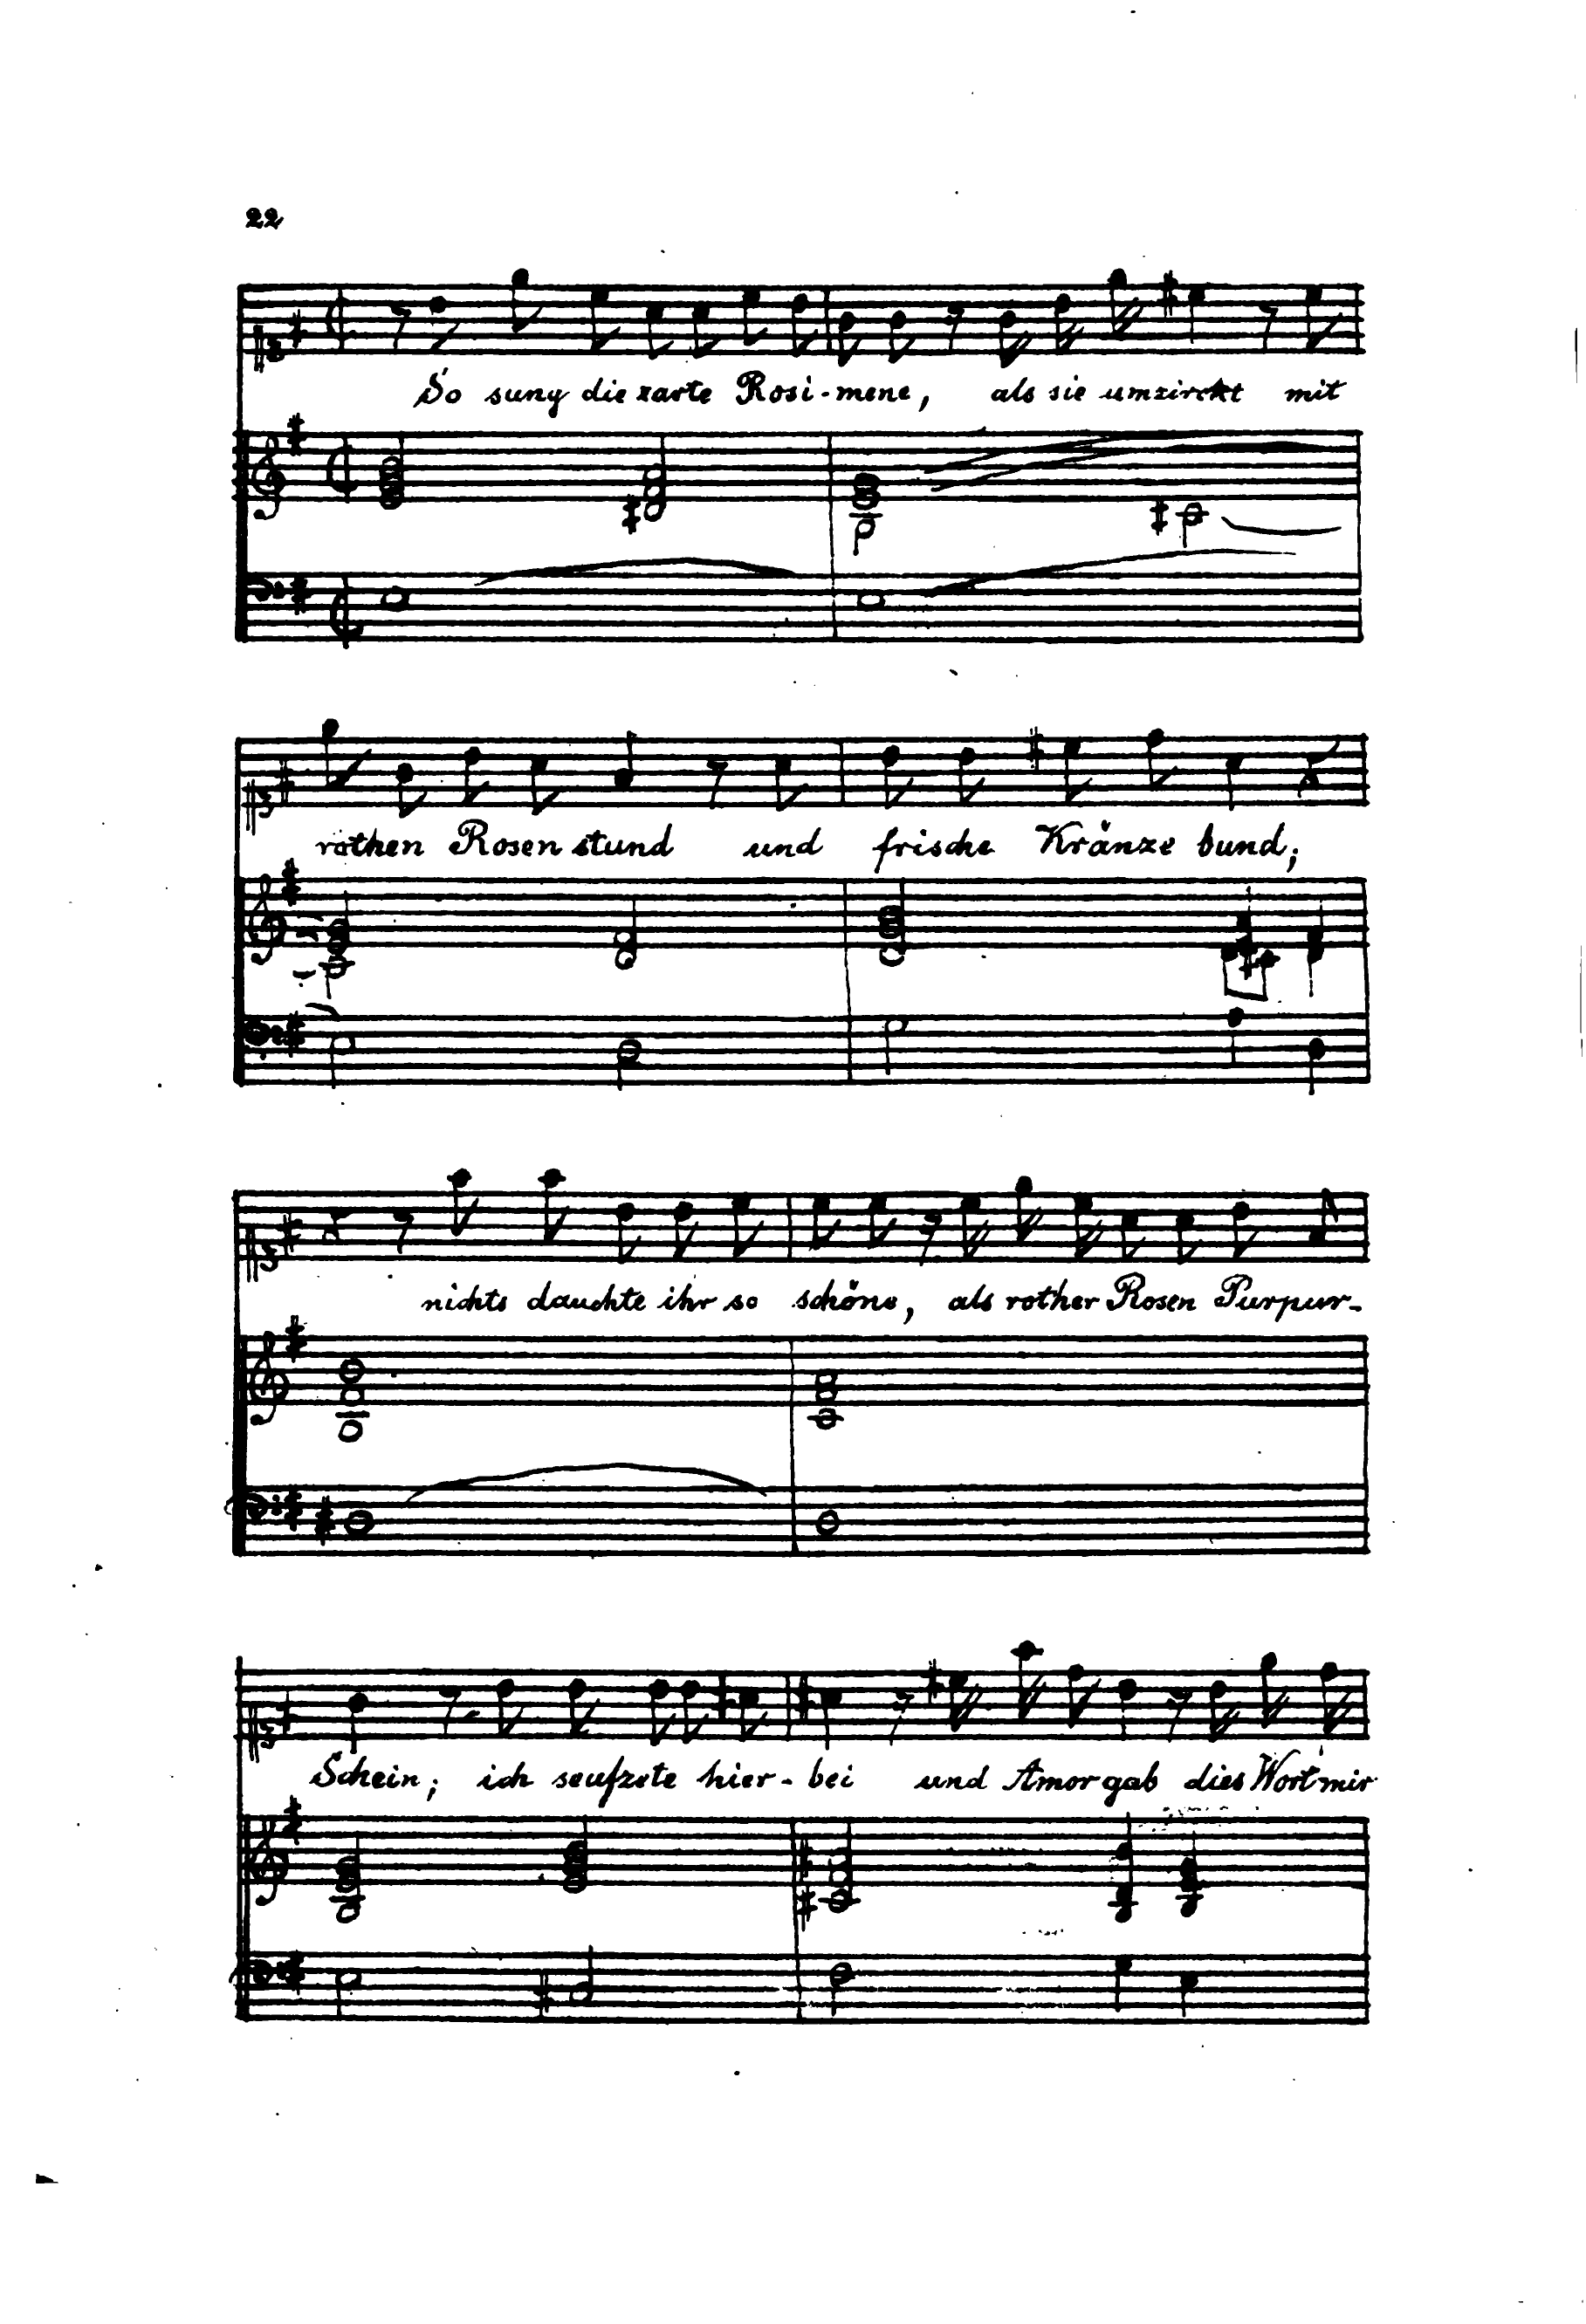 22
So sung die zarte Rosi-mene, als sie umzirckt mit
rothen Rosen stund und frische Kränze bund;
nichts dauchte ihr so schöne, als rother Rosen Purpur-
Schein; ich seufzete hier-bei und Amor gab dies Wort mir